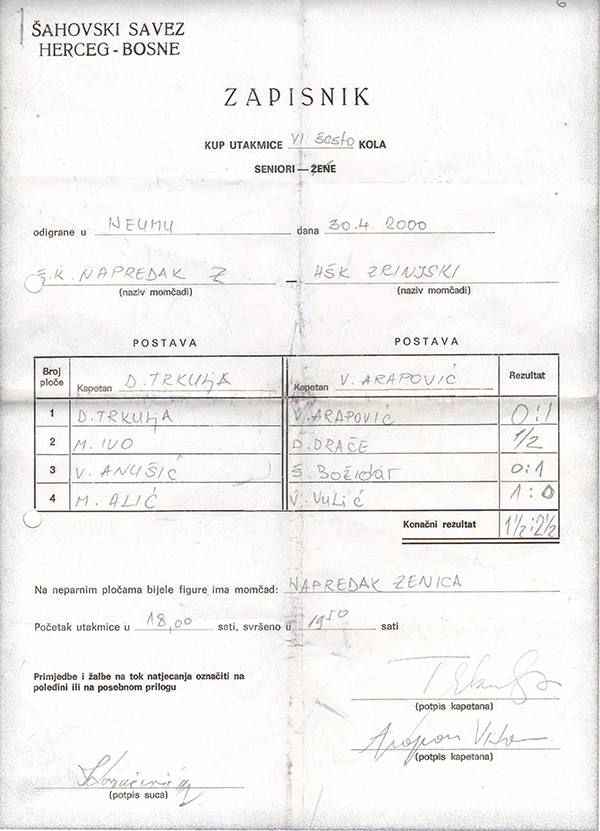 6
ŠAHOVSKI SAVEZ
HERCEG - BOSNE
ZAPISNIK
KUP UTAKMICE VI šesto KOLA
SENIORI — ŽENE
odigrane u NEUMU dana 30.4. 2000
Š.K. NAPREDAK Z — HŠK ZRINJSKI
(naziv momčadi) (naziv momčadi)
POSTAVA POSTAVA
Broj ploče Kapetan D. TRKULJA Kapetan V. ARAPOVIĆ Rezultat
1 D. TRKULJA V. ARAPOVIĆ 0:1
2 M. IVO D. DRAČE 1/2
3 V. ANUŠIĆ Š. Božidar 0:1
4 M. ALIĆ V. Vulić 1:0
Konačni rezultat 1½:2½
Na neparnim pločama bijele figure ima momčad: NAPREDAK ZENICA
Početak utakmice u 18,00 sati, svršeno u 19⁵⁰ sati
Primjedbe i žalbe na tok natjecanja označiti na
poledini ili na posebnom prilogu
(potpis kapetana)
(potpis kapetana)
(potpis suca)